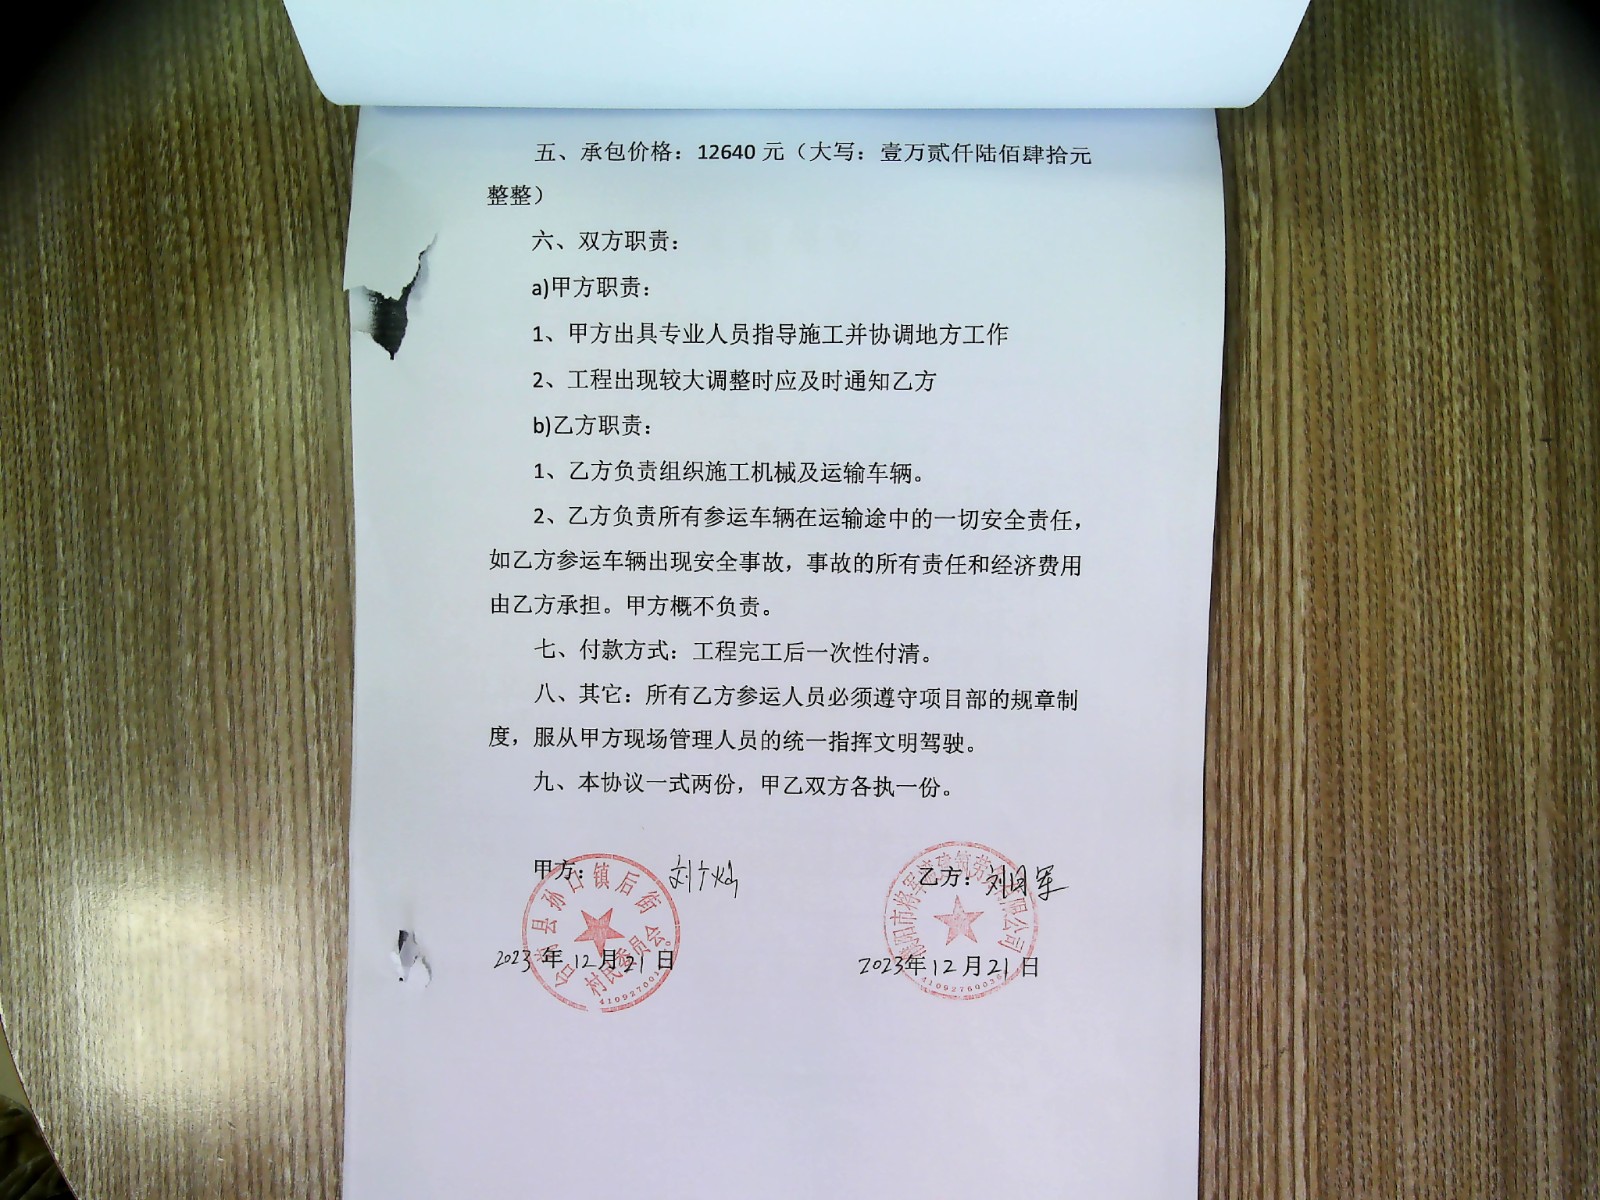 五、承包价格：12640 元（大写：壹万贰仟陆佰肆拾元
整整）
六、双方职责：
a)甲方职责：
1、甲方出具专业人员指导施工并协调地方工作
2、工程出现较大调整时应及时通知乙方
b)乙方职责：
1、乙方负责组织施工机械及运输车辆。
2、乙方负责所有参运车辆在运输途中的一切安全责任，
如乙方参运车辆出现安全事故，事故的所有责任和经济费用
由乙方承担。甲方概不负责。
七、付款方式：工程完工后一次性付清。
八、其它：所有乙方参运人员必须遵守项目部的规章制
度，服从甲方现场管理人员的统一指挥文明驾驶。
九、本协议一式两份，甲乙双方各执一份。
甲方：
台前县孙口镇后街
村民委员会
乙方：刘月军
濮阳市将军渡建筑劳务有限公司
2023年12月21日
2023年12月21日